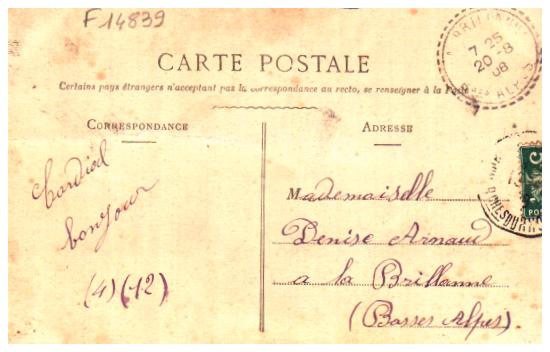 F 14839
CARTE POSTALE
Certains pays étrangers n'acceptant pas la correspondance au recto, se renseigner à la Poste
CORRESPONDANCE
ADRESSE
Cordial
bonjour
(4) (12)
Mademoiselle
Denise Arnaud
a la Brillanne
(Basses Alpes)
7 25
20 -8
08
ALPES
POS